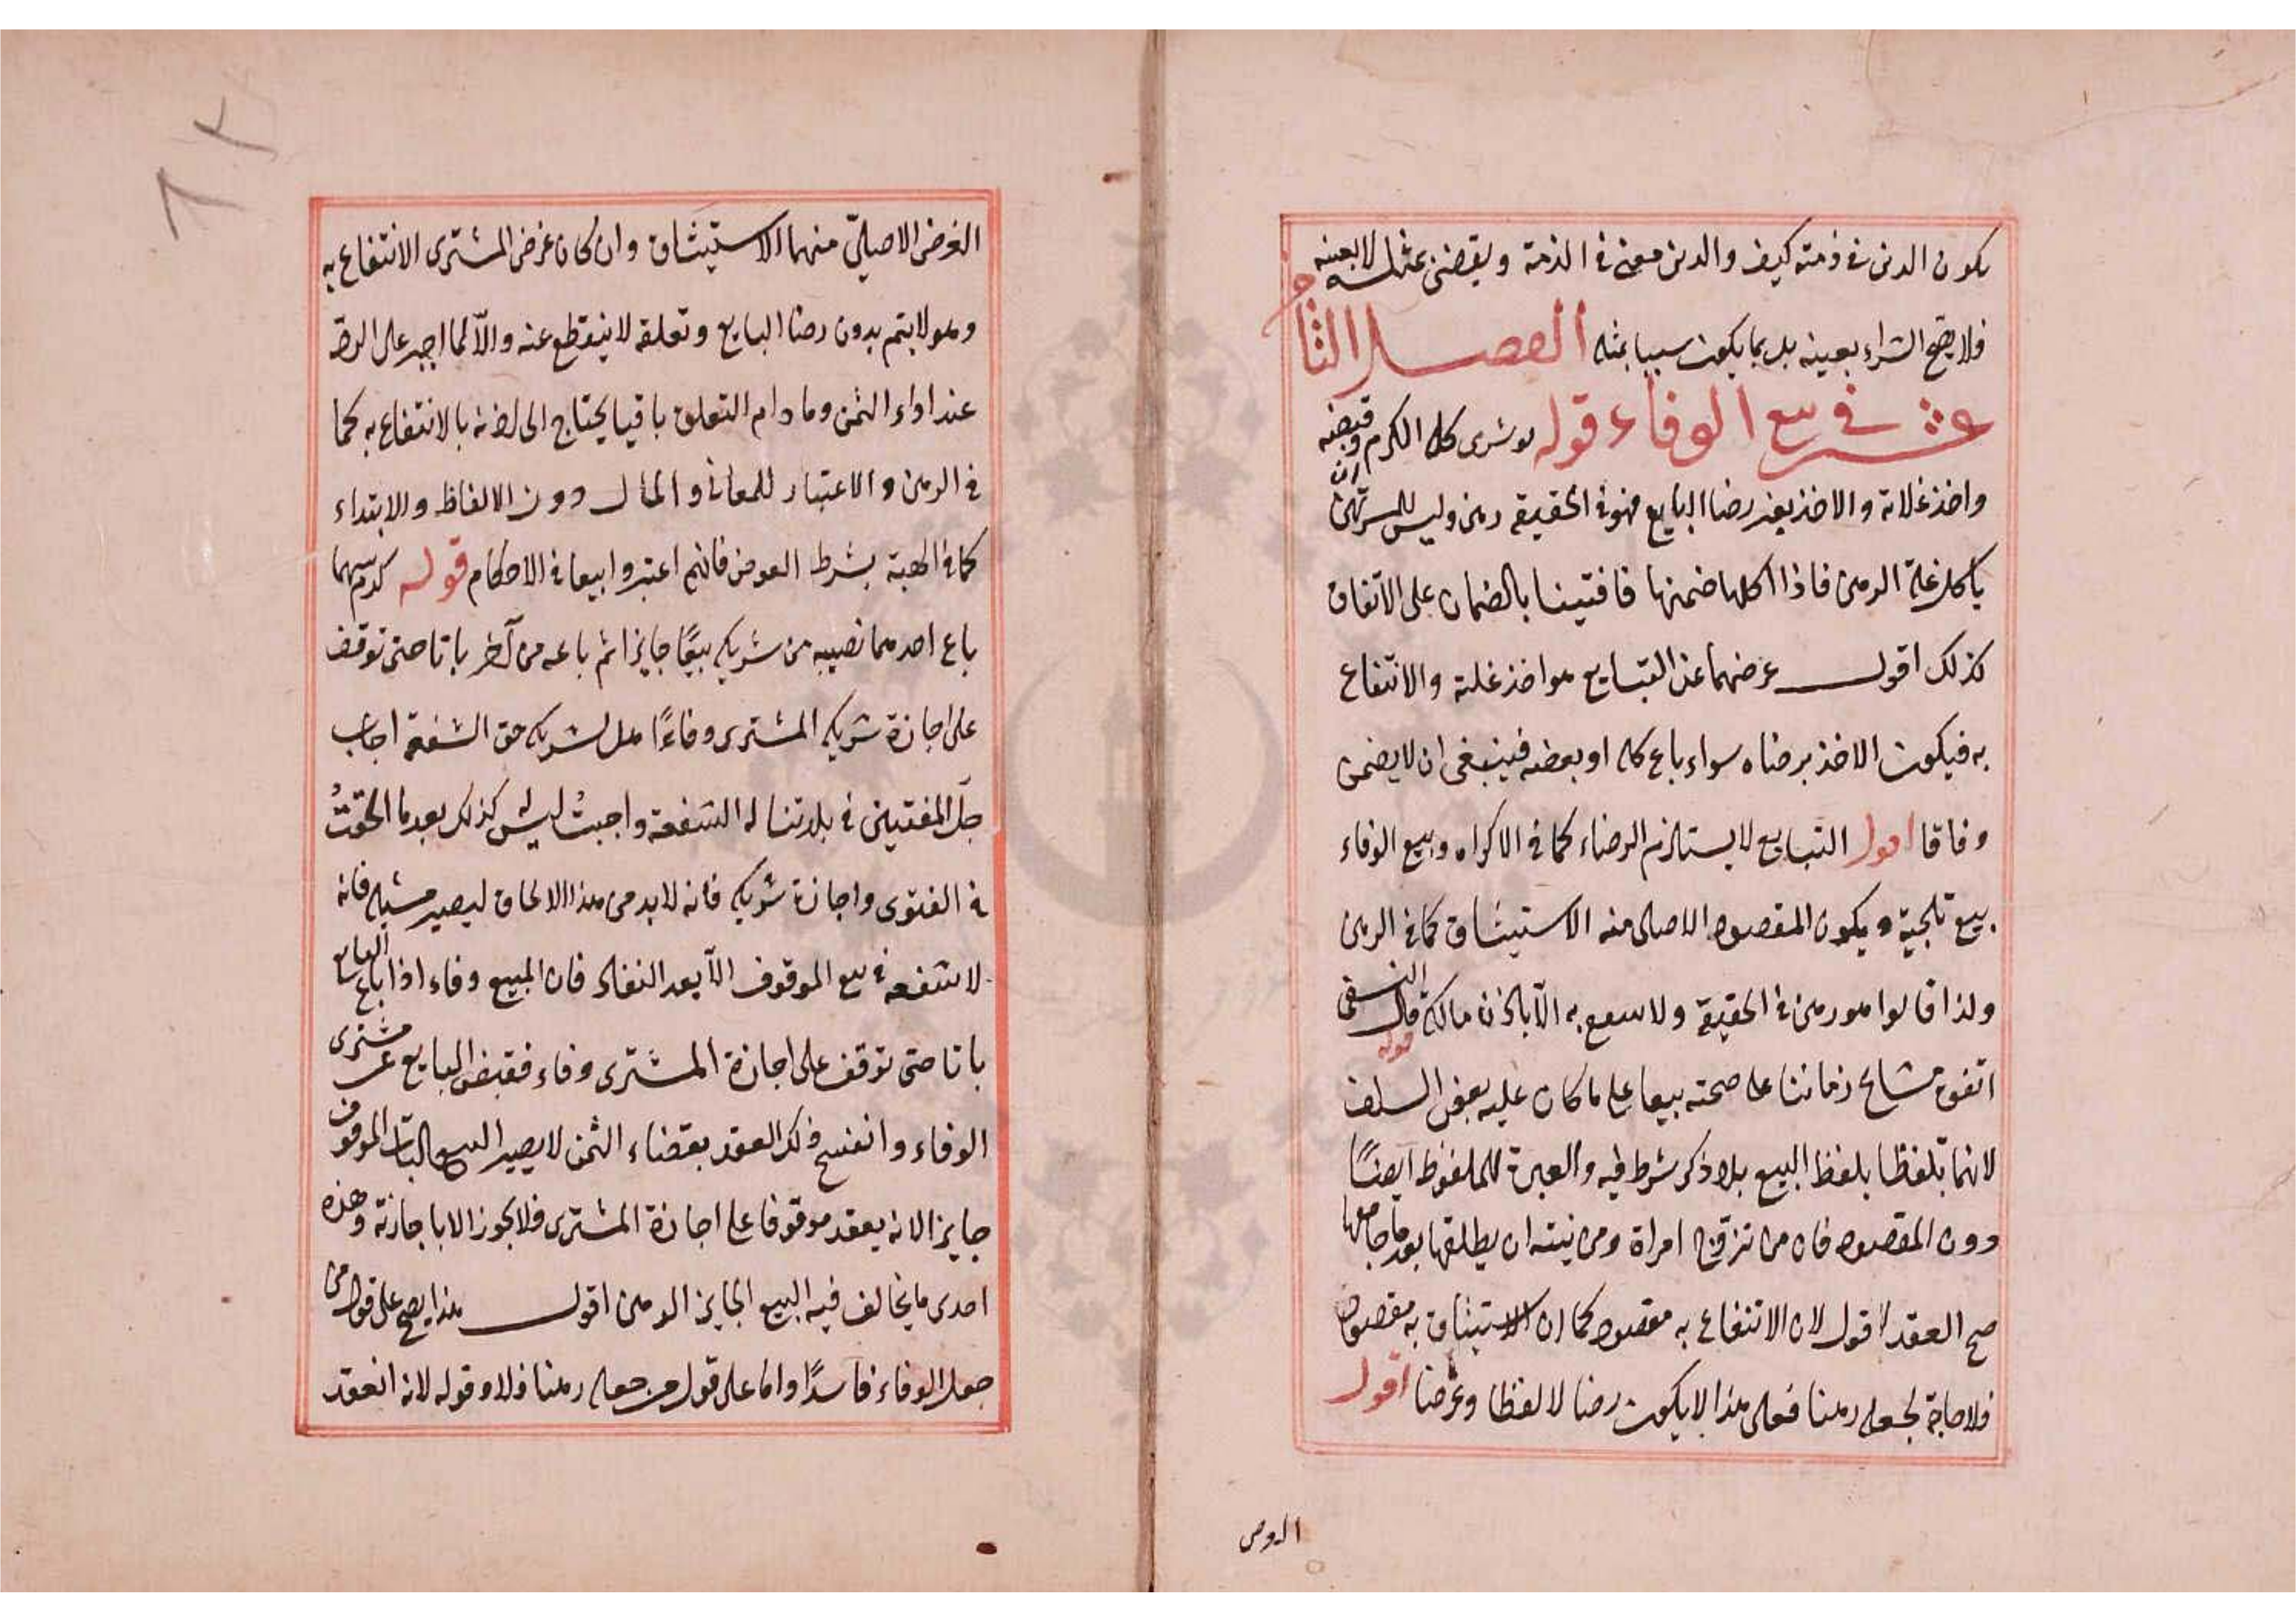 يكون الدين في ذمته كيف والدين معنى في الذمة ويقضى بمثله لا بعينه
فلا يصح الشراء بعينه بل بما يكون سببا بمثله الفصل الثامن
عشر في بيع الوفاء قوله لو شرى كل الكرم وقبضه
واخذ غلاته والاخذ بغير رضا البايع فهو في الحقيقة رهن وليس للمرتهن ان
ياكل غلة الرهن فاذا اكلها ضمنها فافتينا بالضمان على الاتفاق
كذلك اقول غرضهما عن التبايع هو اخذ غلته والانتفاع
به فيكون الاخذ برضاه سواء باع كله او بعضه فينبغى ان لا يضمن
وفاقا اقول التبايع لا يستلزم الرضاء كما في الاكراه وبيع الوفاء
بيع تلجية ويكون المقصود الاصلى منه الاستيثاق كما في الرهن
ولذا قالوا هو رهن في الحقيقة ولا ينتفع به الّا باذن مالكه قوله قال النسفى
اتفق مشايخ زماننا على صحته بيعا على ما كان عليه بعض السلف
لانهما تلفظا بلفظ البيع بلا ذكر شرط فيه والعبرة للملفوظ ايضًا
دون المقصود فان من تزوّج امراة ومن نيته ان يطلقها بعد ما جامعها
صح العقد اقول لان الانتفاع به مقصود كما ان الاستيثاق به مقصود
فلا حاجة لجعله رهنا فعلى هذا لا يكون رهنا لا لفظا وغرضا اقول
الغرض
الغرض الاصليّ منهما الاستيثاق وان كان غرض المشترى الانتفاع به
وهو لا يتم بدون رضا البايع وتعلقه لا ينقطع عنه والّا لما اجبر على الردّ
عند اداء الثمن وما دام التعلق باقيا يحتاج الى اذنه بالانتفاع به كما
في الرهن والاعتبار للمعانى والمآل دون الالفاظ والابتداء
كما في الهبة بشرط العوض فانهم اعتبروا بيعا في الاحكام قوله كرم بينهما
باع احدهما نصيبه من شريكه بيعًا جايزا ثم باعه من آخر باتا حتى توقف
على اجازة شريكه المشترى وفاءً هل لشريكه حق الشفعة اجاب
جلّ المفتيين في بلادتنا له الشفعة واجبتُ ليس كذلك بعد ما الحقتُ
في الفتوى واجازة شريكه فانه لا بد من هذا الالحاق ليصير فانه
لا شفعة في بيع الموقوف الّا بعد النفاذ فان المبيع وفاء اذا باع البايع
باتا حتى توقف على اجازة المشترى وفاء فقبض البايع عن مشترى
الوفاء وانفسخ ذلك العقد بقضاء الثمن لا يصير البيع البات الموقوف
جايزا لانه يعقد موقوفا على اجازة المشترى فلا يجوز الا باجازته وهذه
احدى ما يخالف فيه البيع الجايز الرهن اقول هذا يصح على قول من
جعل الوفاء فاسدًا واما على قول من جعله رهنا فلا وقوله لانه انعقد